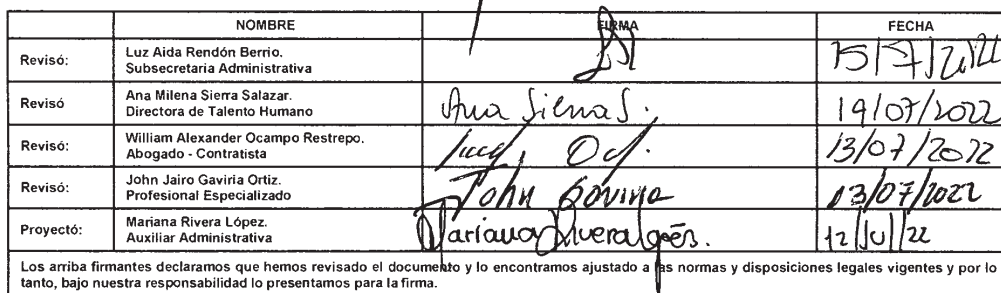 NOMBRE FIRMA FECHA
Revisó: Luz Aida Rendón Berrio.
Subsecretaria Administrativa 15/7/2022
Revisó Ana Milena Sierra Salazar.
Directora de Talento Humano Ana Sierra S. 19/07/2022
Revisó: William Alexander Ocampo Restrepo.
Abogado - Contratista 13/07/2022
Revisó: John Jairo Gaviria Ortiz.
Profesional Especializado John Gaviria 13/07/2022
Proyectó: Mariana Rivera López.
Auxiliar Administrativa Mariana Rivera López. 12/Jul/22
Los arriba firmantes declaramos que hemos revisado el documento y lo encontramos ajustado a las normas y disposiciones legales vigentes y por lo
tanto, bajo nuestra responsabilidad lo presentamos para la firma.